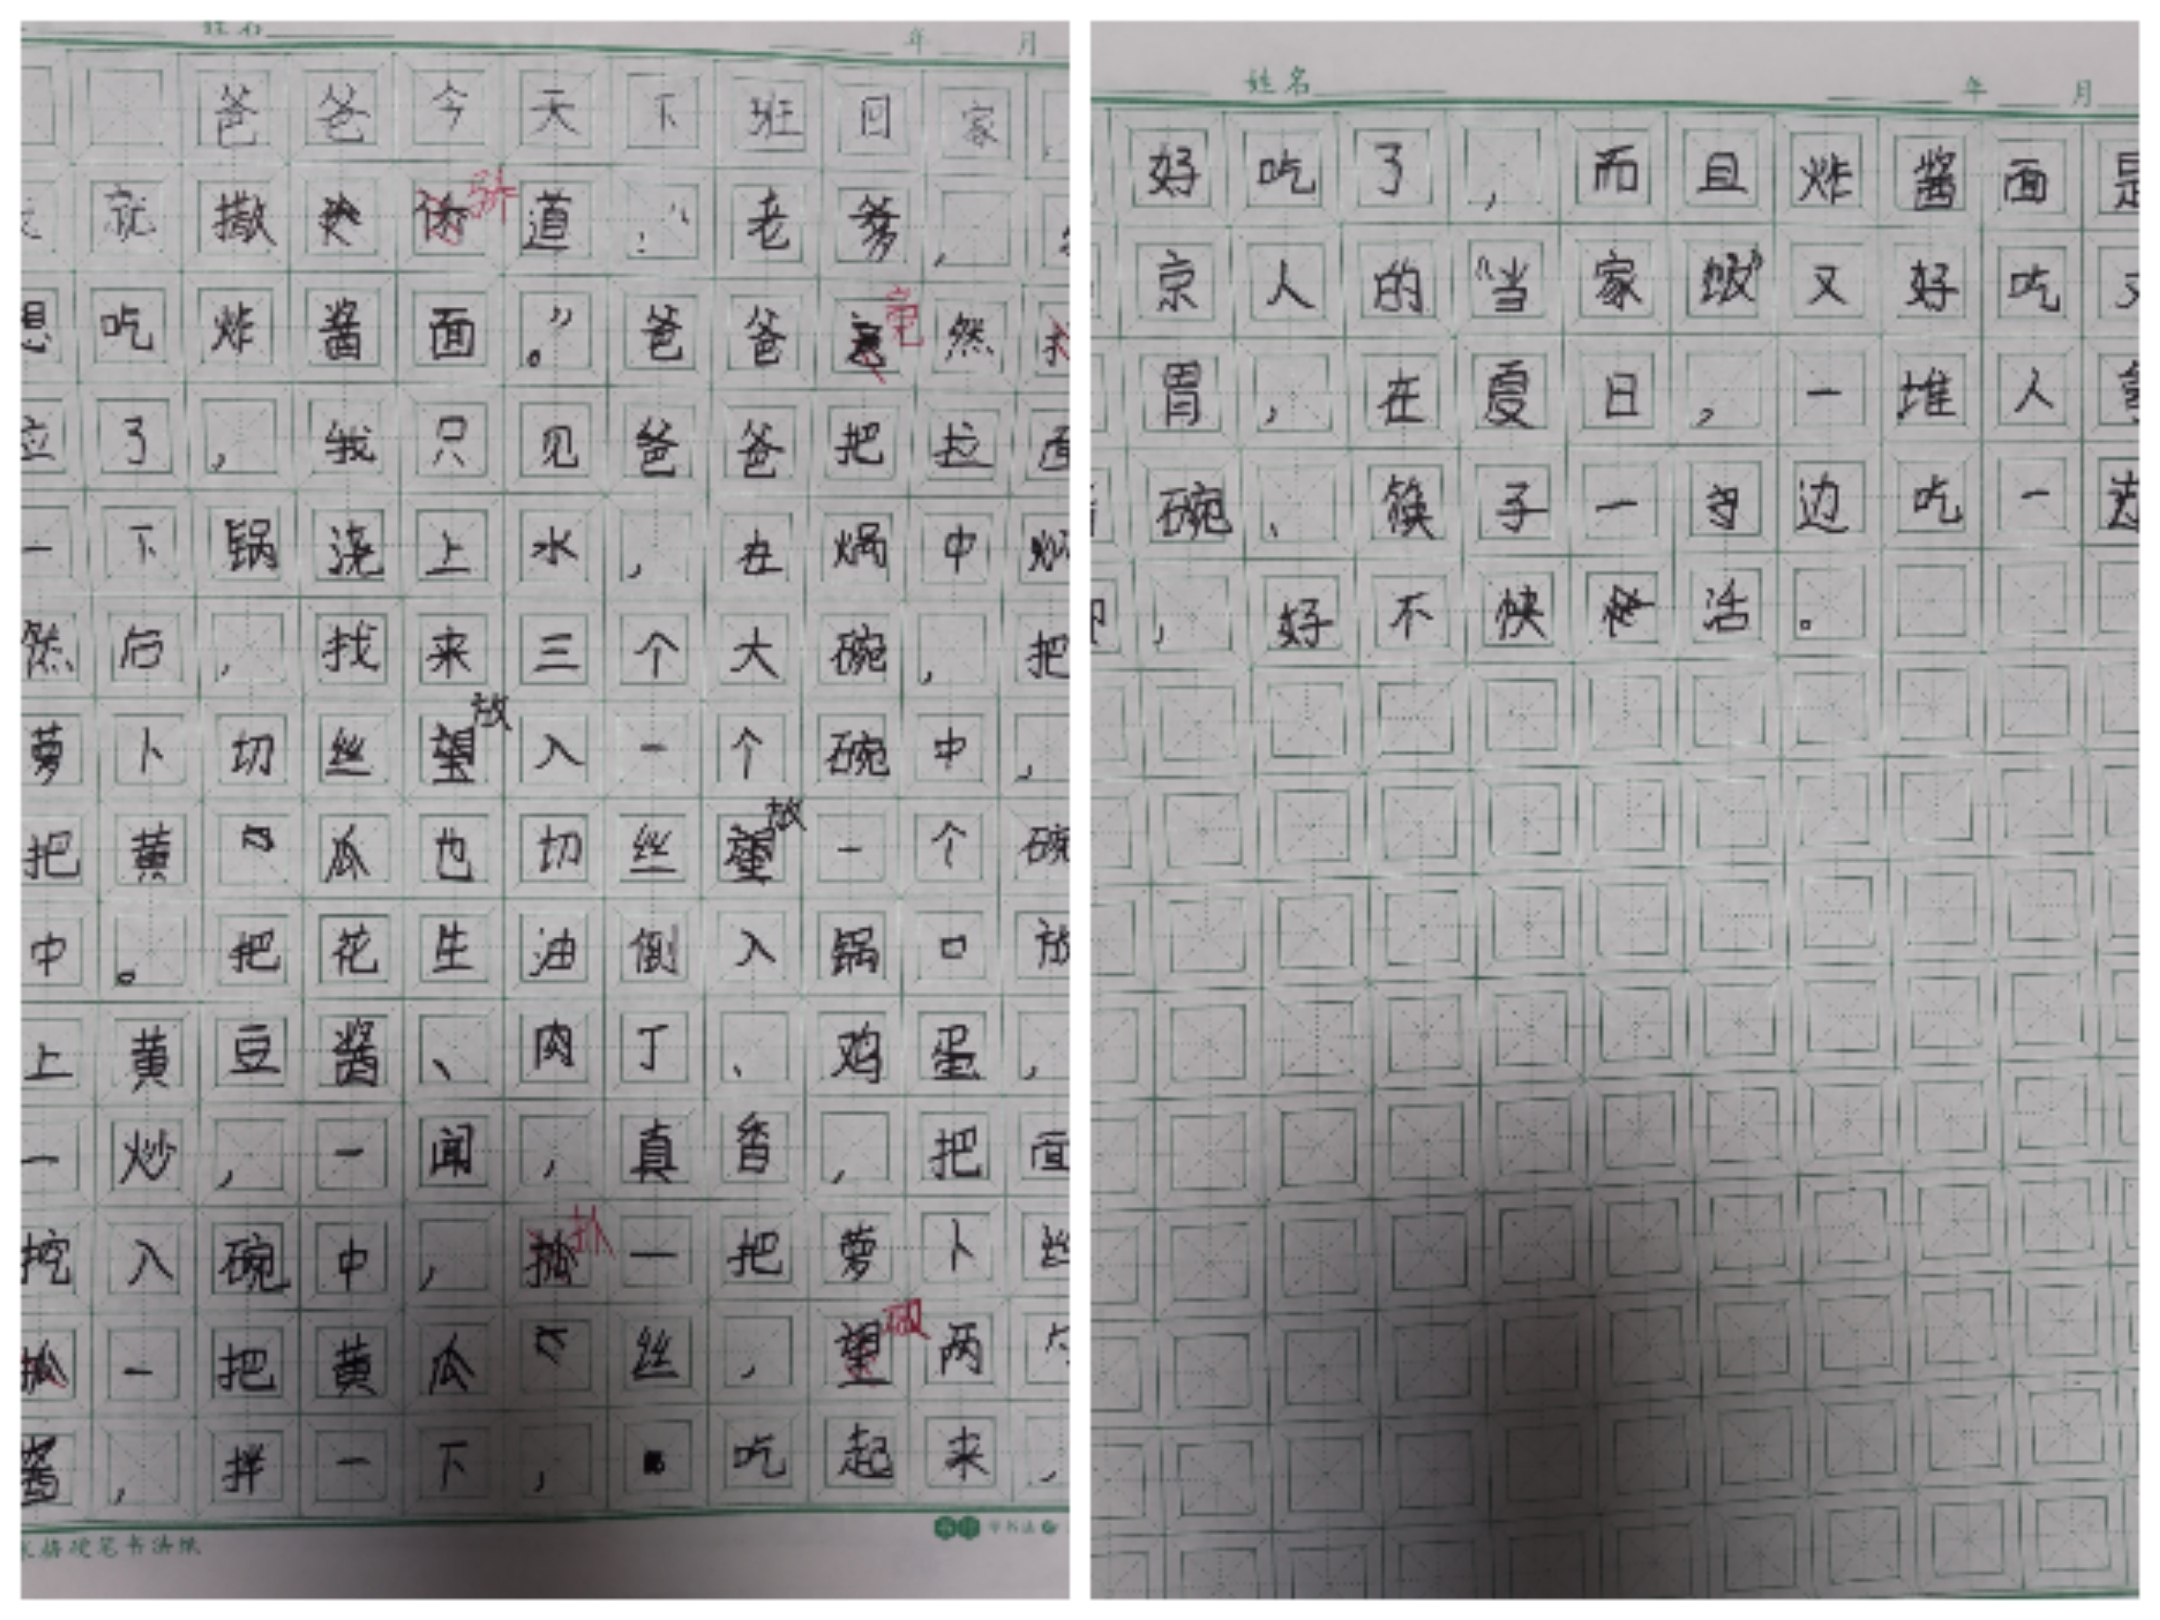 姓名 年 月
爸爸今天下班回家,
就撒娇讲道:“老爹,
想吃炸酱面。”爸爸竟然
应了,我只见爸爸把拉面
一下锅浇上水,在焖中
然后,找来三个大碗,把
萝卜切丝放入一个碗中,
把黄瓜也切丝放一个碗
中。把花生油倒入锅口放
上黄豆酱、肉丁、鸡蛋,
一炒,一闻,真香,把面
挖入碗中,扒一把萝卜丝
一把黄瓜丝,两
酱,拌一下,吃起来,
硬笔书法纸
姓名 年 月
好吃了,而且炸酱面是
京人的“当家饭”又好吃又
胃,在夏日,一堆人
碗、筷子一边吃一边
,好不快活。